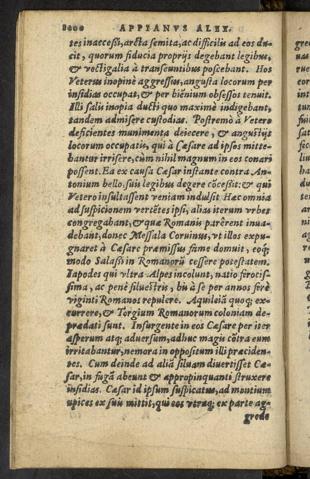 APPIANVS ALEX.
tes inaceßi, arcta semita, ac difficilis ad eos du-
cit, quorum fiducia proprijs degebant legibus,
& vectigalia à transeuntibus poscebant. Hos
Veterus inopinè aggressus, angusta locorum per
insidias occupat, & per biēnium obsessos tenuit.
Illi salis inopia ducti quo maximè indigebant,
tandem admisere custodias. Postremò à Vetero
deficientes munimenta deiecere, & angustijs
locorum occupatis, qui à Cæsare ad ipsos mitte-
bantur irrisere, cùm nihil magnum in eos conari
possent. Ea ex causa Cæsar instante contra An-
tonium bello, suis legibus degere cōceßit: & qui
Vetero insultassent veniam indulsit. Hæc omnia
ad suspicionem vertētes ipsi, alias iterum vrbes
congregabant, & quæ Romanis parērent inua-
debant, donec Messala Coruinus, vt illos expu-
gnaret à Cæsare præmissus fame domuit, eoq;
modo Salassi in Romanorū cessere potestatem.
Iapodes qui vltra Alpes incolunt, natio ferocis-
sima, ac penè siluestris, bis à se per annos ferè
viginti Romanos repulere. Aquileiā quoq; ex-
currere, & Tergium Romanorum coloniam de-
prædati sunt. Insurgente in eos Cæsare per iter
asperum atq; aduersum, adhuc magis cōtra eum
irritabantur, nemora in oppositum illi præciden-
tes. Cum deinde ad aliā siluam diuertisset Cæ-
sar, in fugā abeunt & appropinquanti struxere
insidias. Cæsar id ipsum suspicatus, ad montium
apices ex suis mittit, qui eos vtraq; ex parte ag-
grede